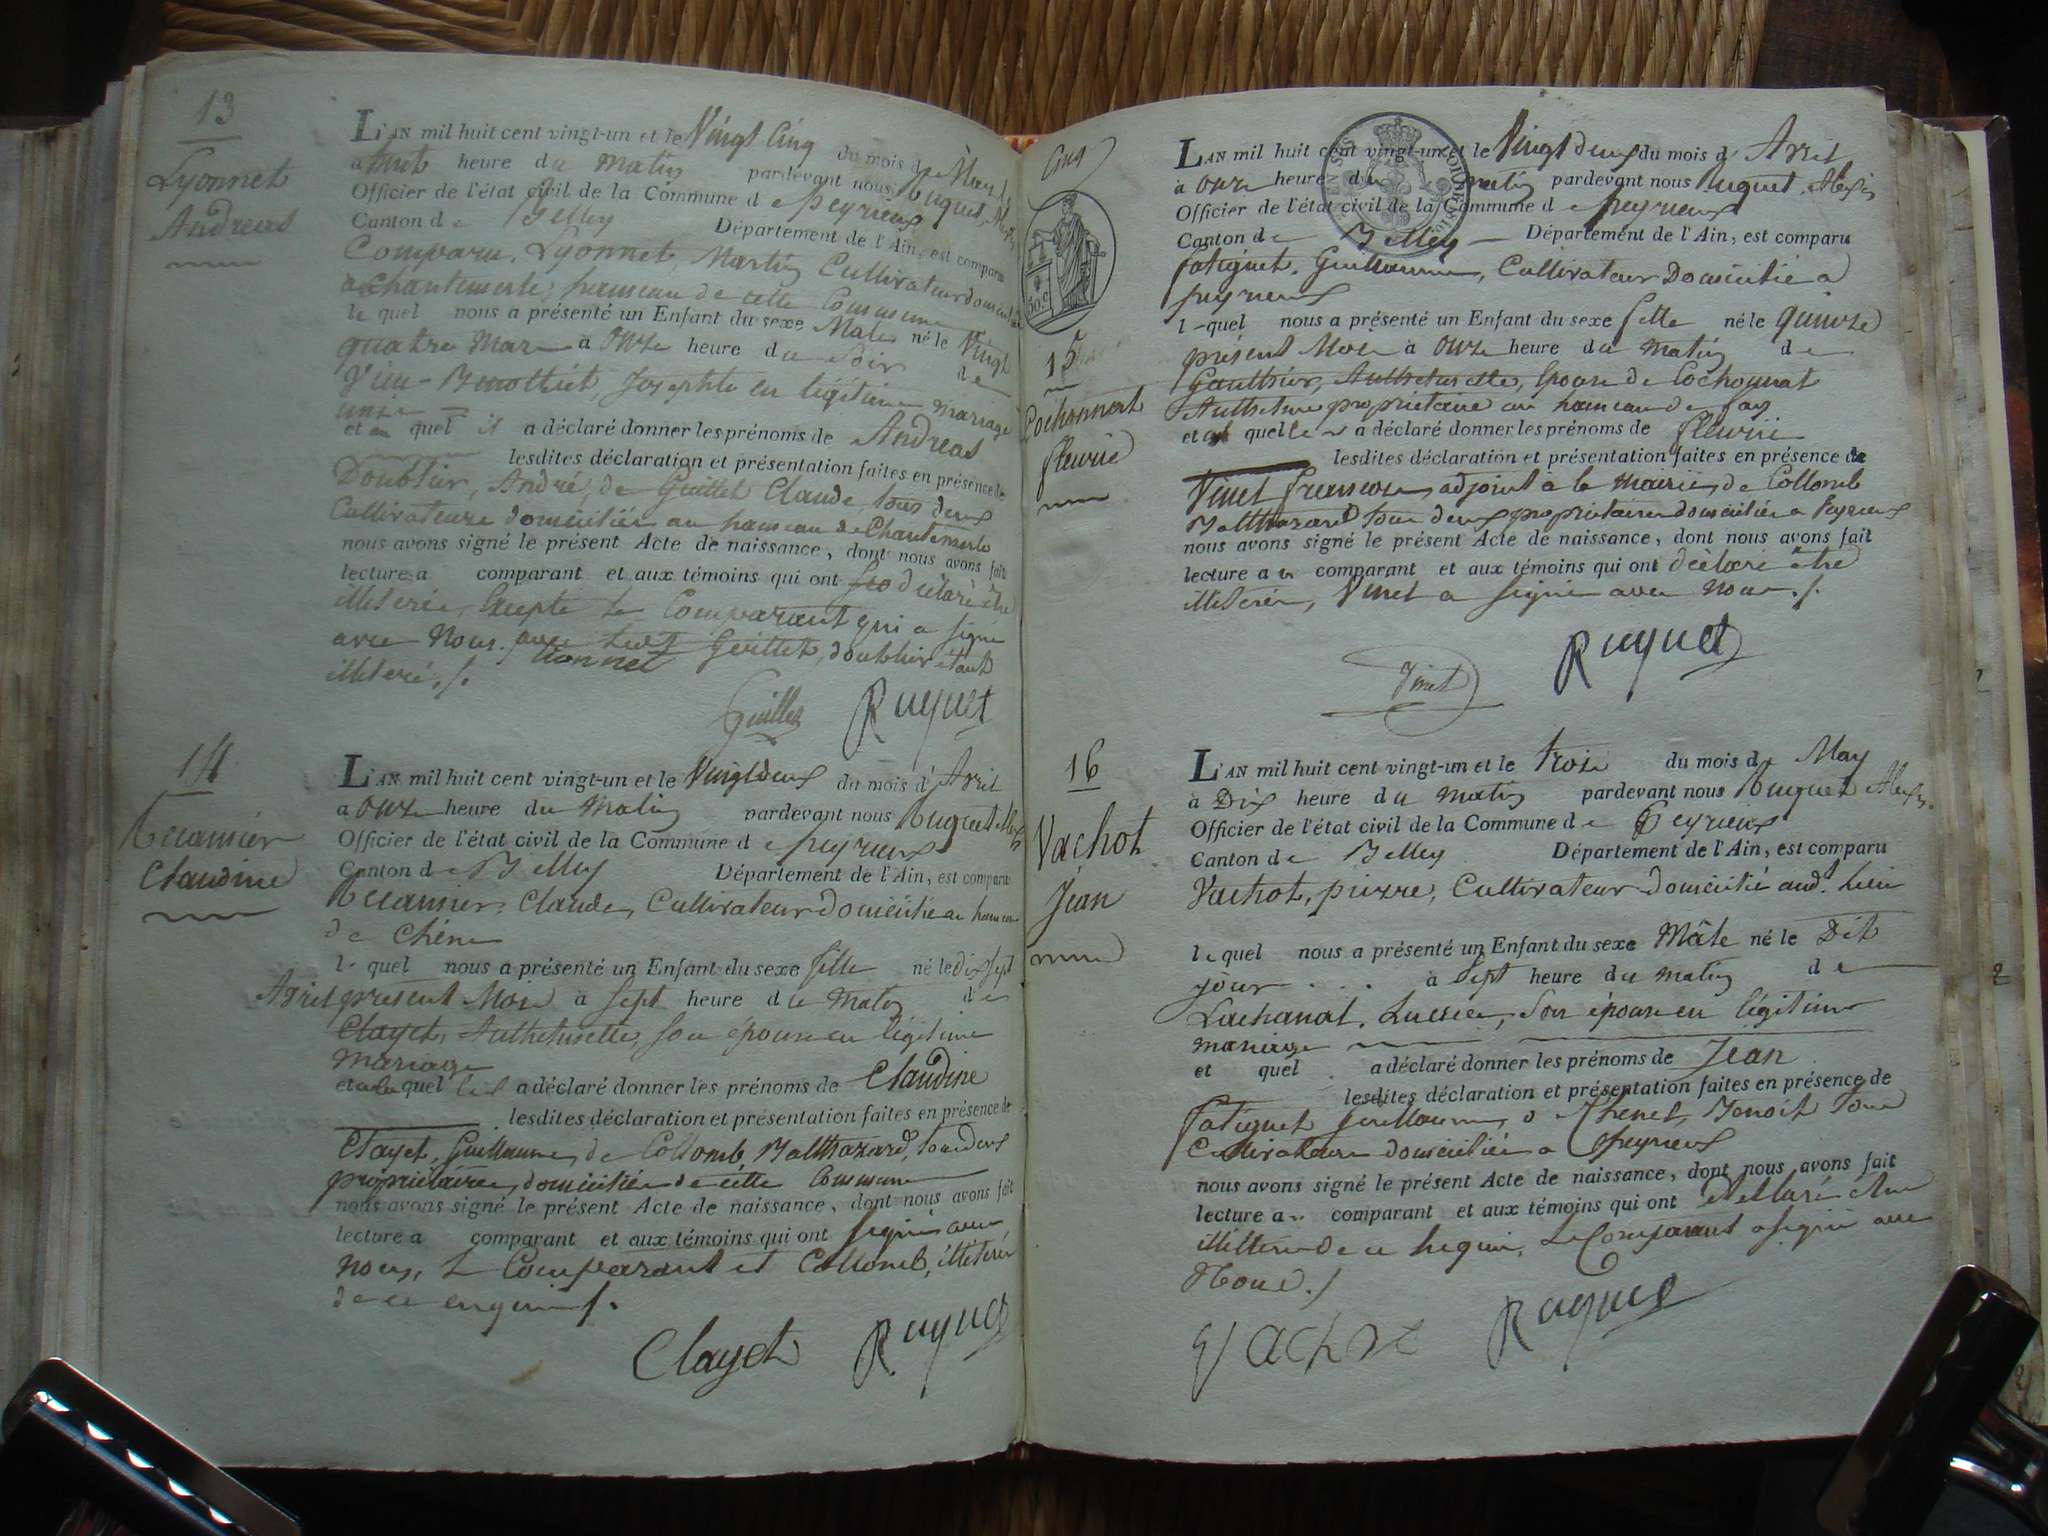 13
Lyonnet
Andreas
L'AN mil huit cent vingt-un et le Vingt Cinq du mois de
à huit heure du matin pardevant nous Ruquet
Officier de l'état civil de la Commune de peyrieux
Canton de Belley Département de l'Ain, est comparu
Comparu, Lyonnet Martin Cultivateur
a Chantemerle, hameau de cette Commune
le quel nous a présenté un Enfant du sexe Male né le Vingt
quatre Mars à Onze heure du Soir de
Josephte en légitime mariage
et au quel il a déclaré donner les prénoms de Andreas
lesdites déclaration et présentation faites en présence de
Doublier, André, de Guillet Claude, tous deux
Cultivateurs domiciliés au hameau de Chantemerle
nous avons signé le présent Acte de naissance, dont nous avons fait
lecture a comparant et aux témoins qui ont déclaré être
illiteré, Excepté le Comparant qui a signé
avec Nous. Guillet, doublier étant
illiteré ./.
Lionnet
Guillet Ruquet
14
Claudine
L'AN mil huit cent vingt-un et le Vingt deux du mois d'Avril
à Onze heure du Matin pardevant nous Ruquet Alexis
Officier de l'état civil de la Commune de peyrieux
Canton de Belley Département de l'Ain, est comparu
Claude, Cultivateur Domicilié au hameau
de Chêne
le quel nous a présenté un Enfant du sexe fille né le dix sept
Avril présent Mois à Sept heure du Matin de
Clayet, Anthelmette, son épouse en légitime
Mariage
et a la quel a déclaré donner les prénoms de Claudine
lesdites déclaration et présentation faites en présence de
Clayet, Guillaume, de Collomb Balthazard, tous deux
propriétaires, domiciliés de cette Commune
nous avons signé le présent Acte de naissance, dont nous avons fait
lecture a comparant et aux témoins qui ont signé avec
nous, le Comparant et Collomb, illiterés
de ce enquis ./.
Clayet Ruquet
50 c
15
Cochonnat
fleurie
L'AN mil huit cent vingt-un et le Vingt deux du mois d'Avril
à onze heure du matin pardevant nous Ruquet, Alexis
Officier de l'état civil de la Commune de peyrieux
Canton de Belley Département de l'Ain, est comparu
fatiguet, Guillaume, Cultivateur Domicilié a
peyrieux
le quel nous a présenté un Enfant du sexe fille né le quinze
présent Mois à onze heure du Matin de
Gauthier, Anthelmette, Epouse de Cochonnat
Anthelme propriétaire au hameau de fay
et quelle a déclaré donner les prénoms de fleurie
lesdites déclaration et présentation faites en présence de
Vinet francois, adjoint a la mairie, de Collomb
Balthazard tous deux propriétaires domiciliés a Peyrieux
nous avons signé le présent Acte de naissance, dont nous avons fait
lecture au comparant et aux témoins qui ont déclaré être
illiterés, Vinet a signé avec nous ./.
Vinet Ruquet
16
Vachot
Jean
L'AN mil huit cent vingt-un et le trois du mois de May
à Dix heure du matin pardevant nous Ruquet Alexis
Officier de l'état civil de la Commune de Peyrieux
Canton de Belley Département de l'Ain, est comparu
Vachot, pierre, Cultivateur domicilié aud. lieu
le quel nous a présenté un Enfant du sexe Mâle né le Dit
jour à Sept heure du matin de
Lachanal, Lucrèce, son épouse en légitime
mariage
et quel a déclaré donner les prénoms de Jean
lesdites déclaration et présentation faites en présence de
fatiguet Guillaume, & Thenet, Benoit tous
Cultivateurs domiciliés a Peyrieux
nous avons signé le présent Acte de naissance, dont nous avons fait
lecture au comparant et aux témoins qui ont déclaré être
illitteré de ce requis, le Comparant a signé avec
Nous ./
Vachot Ruquet